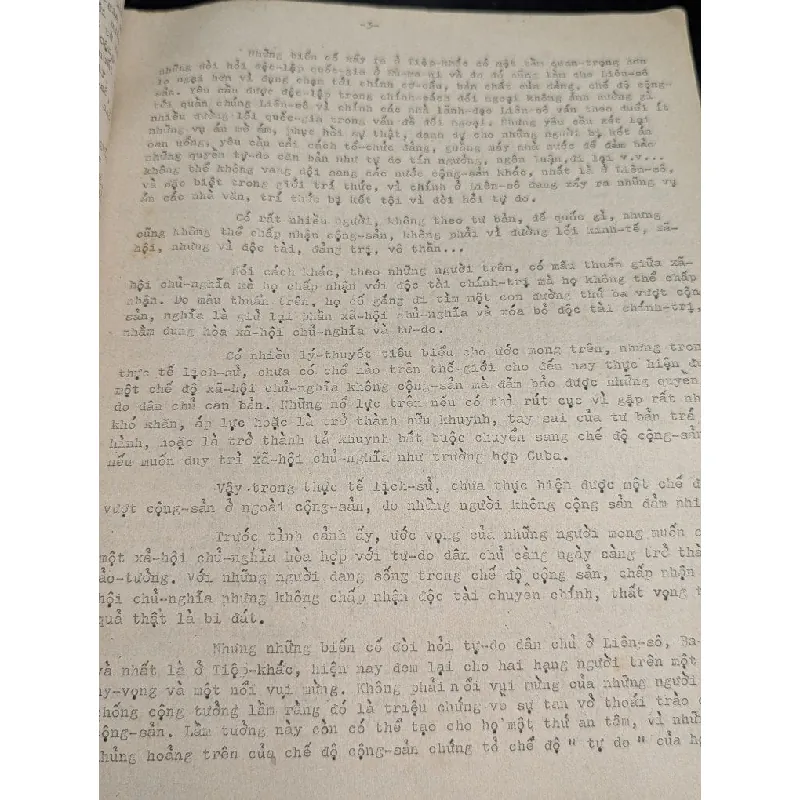 -3-
Những biến cố xẩy ra ở Tiệp-khắc có một tầm quan-trọng hơn
những đòi hỏi độc-lập quốc-gia ở và do đó cũng làm cho Liên-sô
lo ngại hơn vì đụng chạm tới chính cơ-cấu, bản chất của đảng, chế độ cộng-
sản. Yêu cầu được độc-lập trong chính-sách đối ngoại không ảnh hưởng gì
tới quần chúng Liên-sô vì chính các nhà lãnh-đạo Liên-sô vẫn theo đuổi ít
nhiều đường lối quốc-gia trong vấn đề đối ngoại. Nhưng yêu cầu xét lại
những vụ án mờ ám, phục hồi sự thật, danh dự cho những người bị kết án
oan uổng, yêu cầu cải cách tổ-chức đảng, guồng máy nhà nước để đảm bảo
những quyền tự-do căn bản như tự do tín ngưỡng, ngôn luận, đi lại v.v...
không thể không vang dội sang các nước cộng-sản khác, nhất là ở Liên-sô,
và đặc biệt trong giới trí thức, vì chính ở Liên-sô đang xẩy ra những vụ
án các nhà văn, trí thức bị kết tội vì đòi hỏi tự do.
Có rất nhiều người, không theo tư bản, đế quốc gì, nhưng
cũng không thể chấp nhận cộng-sản, không phải vì đường lối kinh-tế, xã-
hội, nhưng vì độc tài, đảng trị, vô thần...
Nói cách khác, theo những người trên, có mâu thuẫn giữa xã-
hội chủ-nghĩa mà họ chấp nhận với độc tài chính-trị mà họ không thể chấp
nhận. Do mâu thuẫn trên, họ cố gắng đi tìm một con đường thứ ba vượt cộng
sản, nghĩa là giữ lại phần xã-hội chủ-nghĩa và xóa bỏ độc tài chính-trị,
nhằm dung hòa xã-hội chủ-nghĩa và tự-do.
Có nhiều lý-thuyết tiêu biểu cho ước mong trên, nhưng tron
thực tế lịch-sử, chưa có chỗ nào trên thế-giới cho đến nay thực hiện đư
một chế độ xã-hội chủ-nghĩa không cộng-sản mà đảm bảo được những quyền
do dân chủ căn bản. Những nỗ lực trên nếu có thì rút cục vì gặp rất nh
khó khăn, áp lực hoặc là trở thành hữu khuynh, tay sai của tư bản trá
hình, hoặc là trở thành tả khuynh bắt buộc chuyển sang chế độ cộng-sản
nếu muốn duy trì xã-hội chủ-nghĩa như trường hợp Cuba.
Vậy trong thực tế lịch-sử, chưa thực hiện được một chế đ
vượt cộng-sản ở ngoài cộng-sản, do những người không cộng sản đảm nhi
Trước tình cảnh ấy, ước vọng của những người mong muốn c
một xã-hội chủ-nghĩa hòa hợp với tự-do dân chủ càng ngày càng trở thà
ảo-tưởng. Với những người đang sống trong chế độ cộng sản, chấp nhận
hội chủ-nghĩa nhưng không chấp nhận độc tài chuyên chính, thất vọng t
quả thật là bi đát.
Nhưng những biến cố đòi hỏi tự-do dân chủ ở Liên-sô, Ba-
và nhất là ở Tiệp-khắc, hiện nay đem lại cho hai hạng người trên một
hy-vọng và một nỗi vui mừng. Không phải nỗi vui mừng của những người
chống cộng tưởng lầm rằng đó là triệu chứng về sự tan vỡ thoái trào c
cộng-sản. Lầm tưởng này còn có thể tạo cho họ một thứ an tâm, vì nhữn
khủng hoảng trên của chế độ cộng-sản chứng tỏ chế độ " tự do " của họ